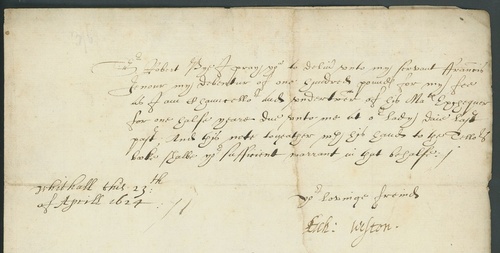 Sr Robert Pye I pray yw to deliver unto my servant Francis
my debentur of one hundred pounds for my fee
as I am Chauncellor and undertrer of his Mats Exchequer
for one halfe yeare due unto me at or Lady due last
past. And this note together wth his hand to the Tellers
booke shalbe yr sufficient warrant in that behalfe./
Whithall this 25th
of Aprill 1624
yor lovinge freind
Rich: Weston.